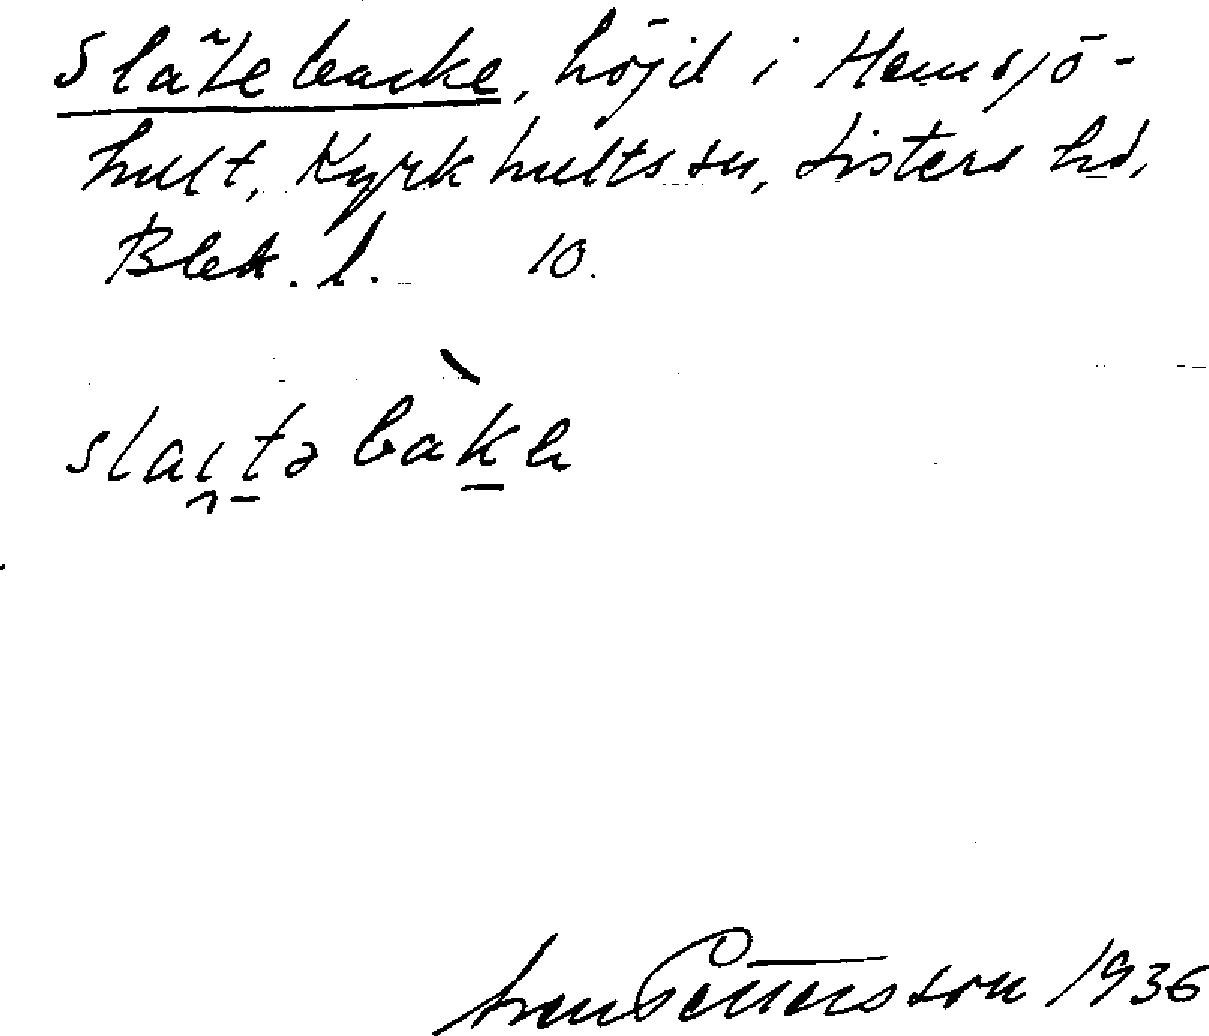 Slätebacke, höjd i Hemsjö-
hult, Kyrkhults sn, Listers hd,
Blek. l. 10.
slaitə bàka
Pettersson 1936